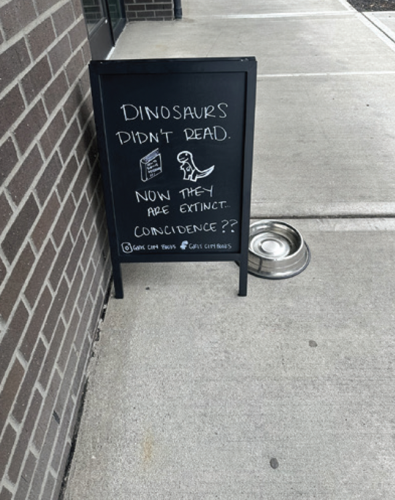 DINOSAURS
DIDN'T READ.
NOW THEY
ARE EXTINCT.
COINCIDENCE ??